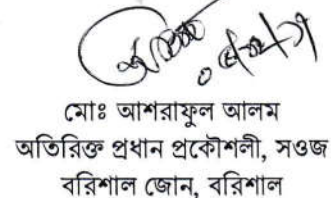 মোঃ আশরাফুল আলম
অতিরিক্ত প্রধান প্রকৌশলী, সওজ
বরিশাল জোন, বরিশাল